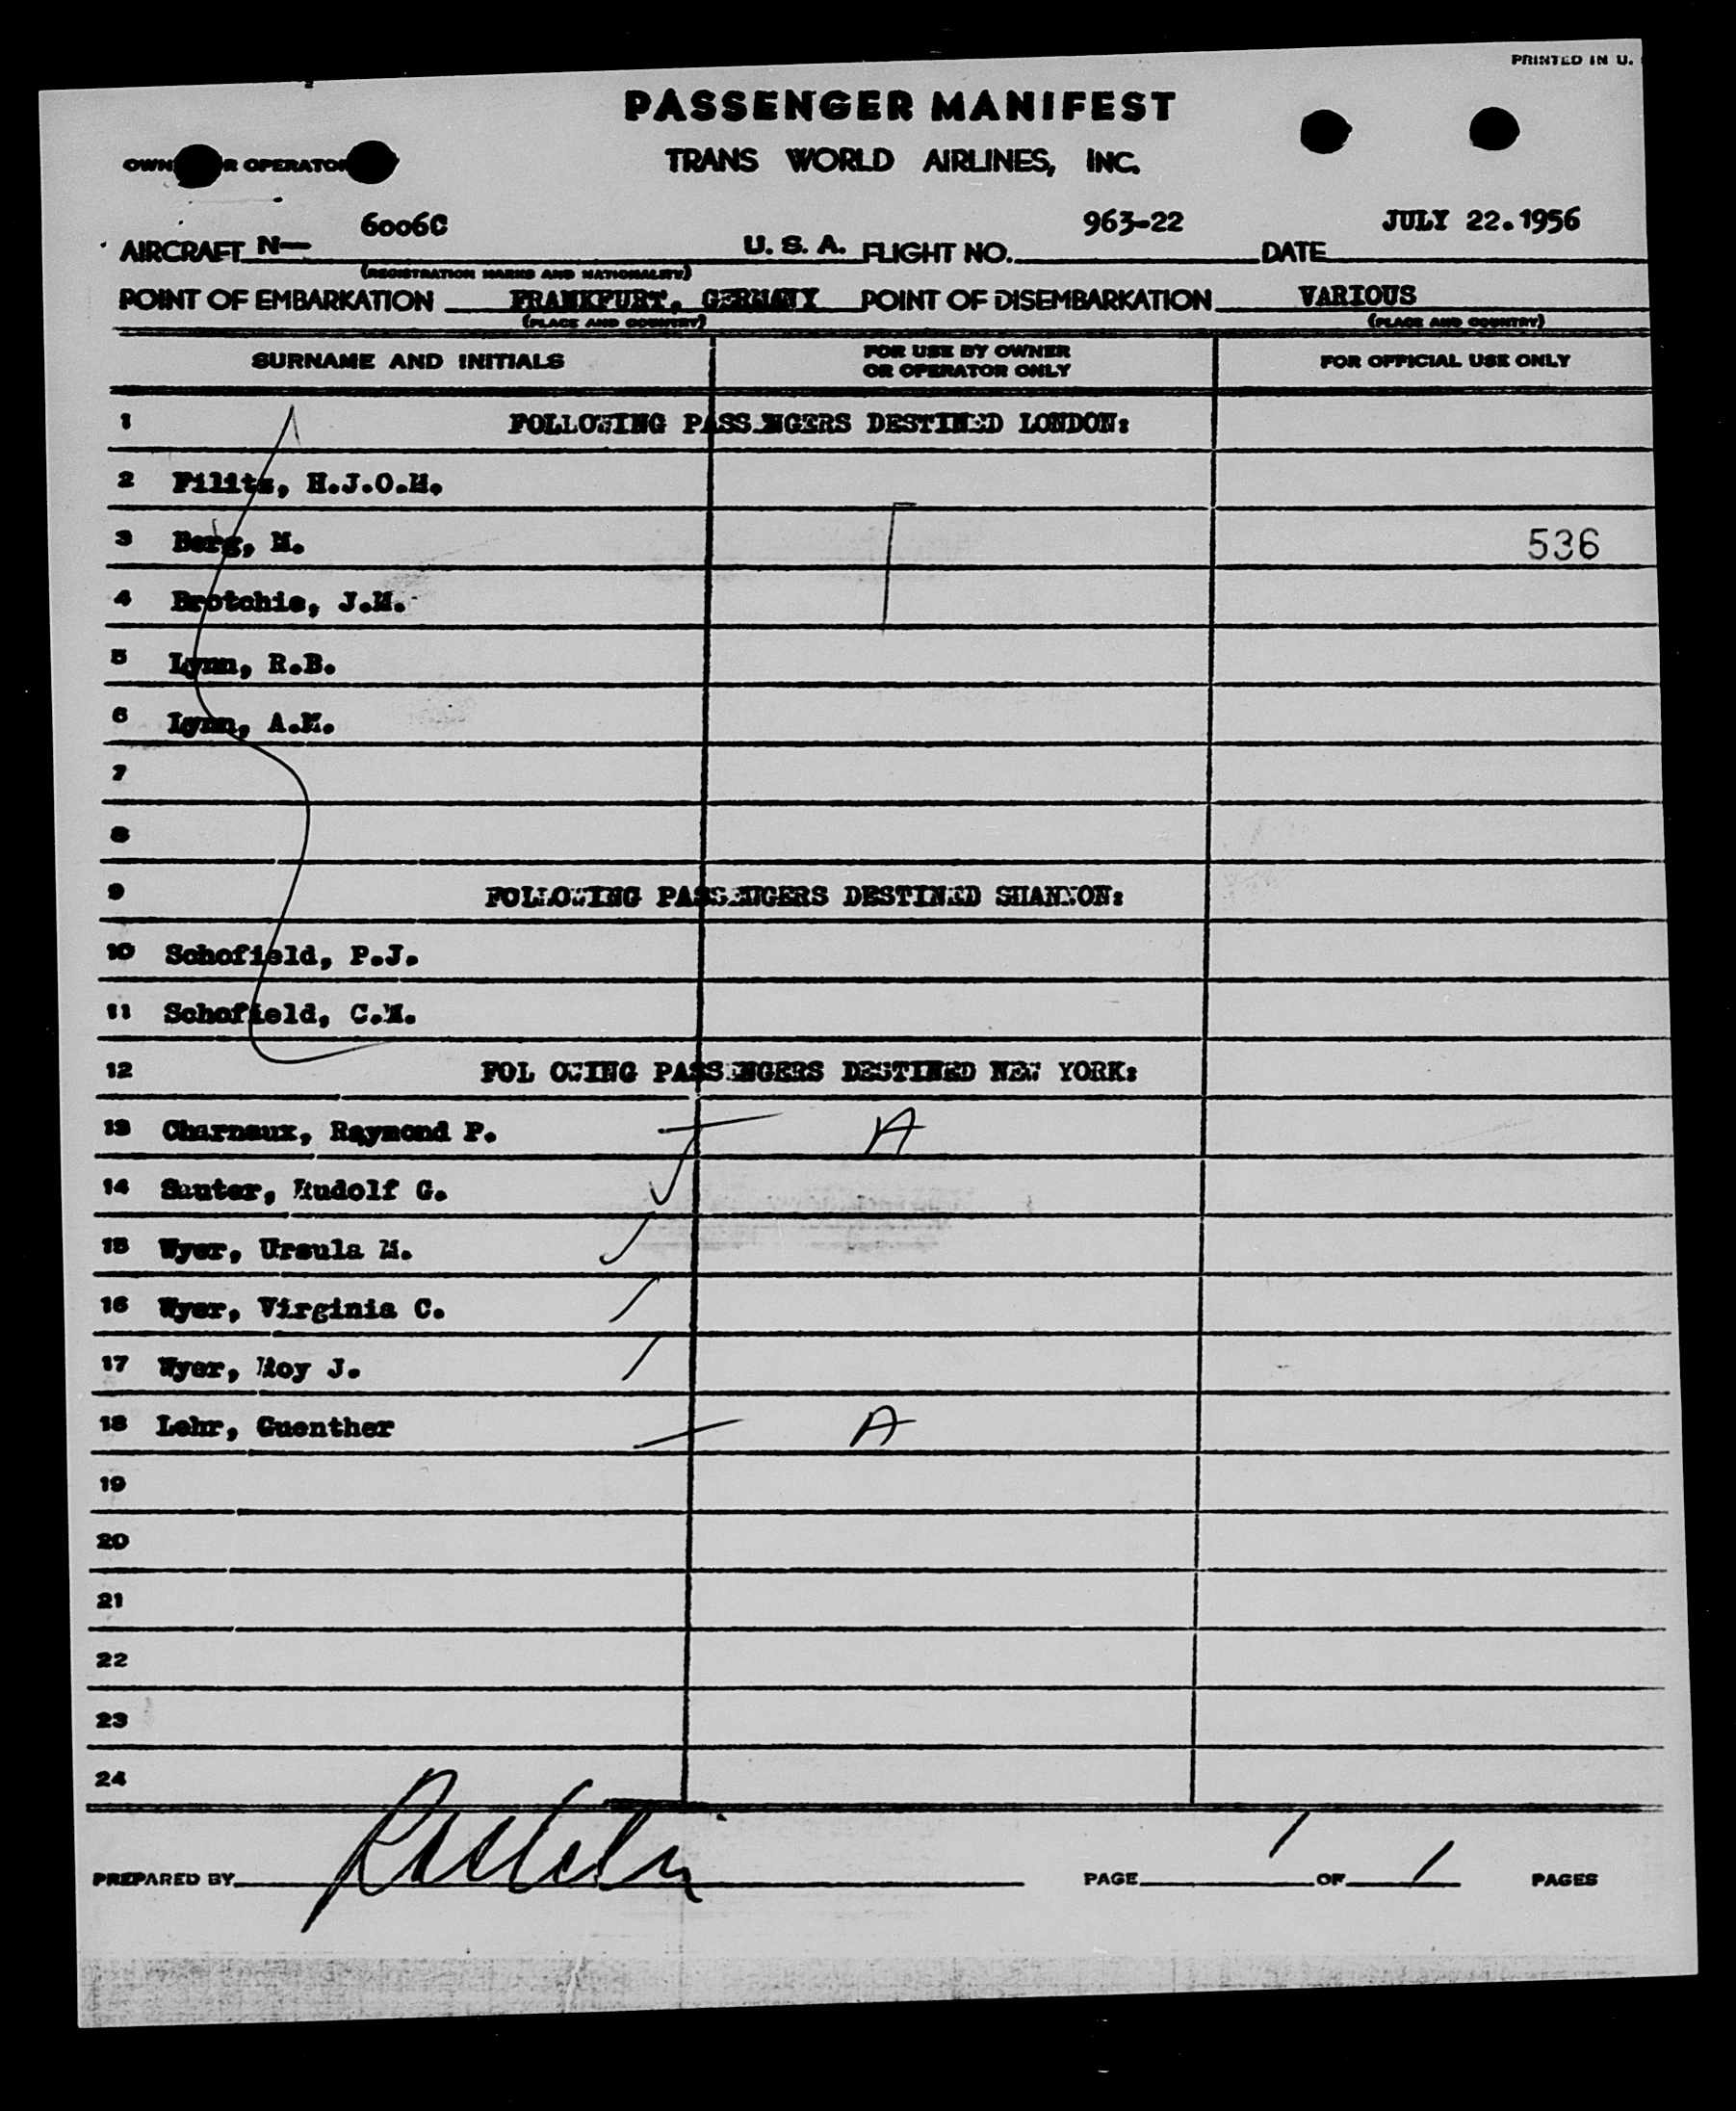 PRINTED IN U.
PASSENGER MANIFEST
OWN R OPERATOR TRANS WORLD AIRLINES, INC.
AIRCRAFT N— 6006C U. S. A. FLIGHT NO. 963-22 DATE JULY 22.1956
(REGISTRATION MARKS AND NATIONALITY)
POINT OF EMBARKATION FRANKFURT, GERMANY POINT OF DISEMBARKATION VARIOUS
(PLACE AND COUNTRY) (PLACE AND COUNTRY)
SURNAME AND INITIALS FOR USE BY OWNER OR OPERATOR ONLY FOR OFFICIAL USE ONLY
1 FOLLOWING PASSENGERS DESTINED LONDON:
2 Filitz, H.J.O.H.
3 Berg, M. 536
4 Brotchie, J.M.
5 Lynn, R.B.
6 Lynn, A.M.
7
8
9 FOLLOWING PASSENGERS DESTINED SHANNON:
10 Schofield, P.J.
11 Schofield, C.M.
12 FOL OWING PASSENGERS DESTINED NEW YORK:
13 Charnaux, Raymond P. A
14 Sauter, Rudolf G.
15 Wyer, Ursula M.
16 Wyer, Virginia C.
17 Wyer, Roy J.
18 Lehr, Guenther A
19
20
21
22
23
24
PREPARED BY PAGE 1 OF 1 PAGES